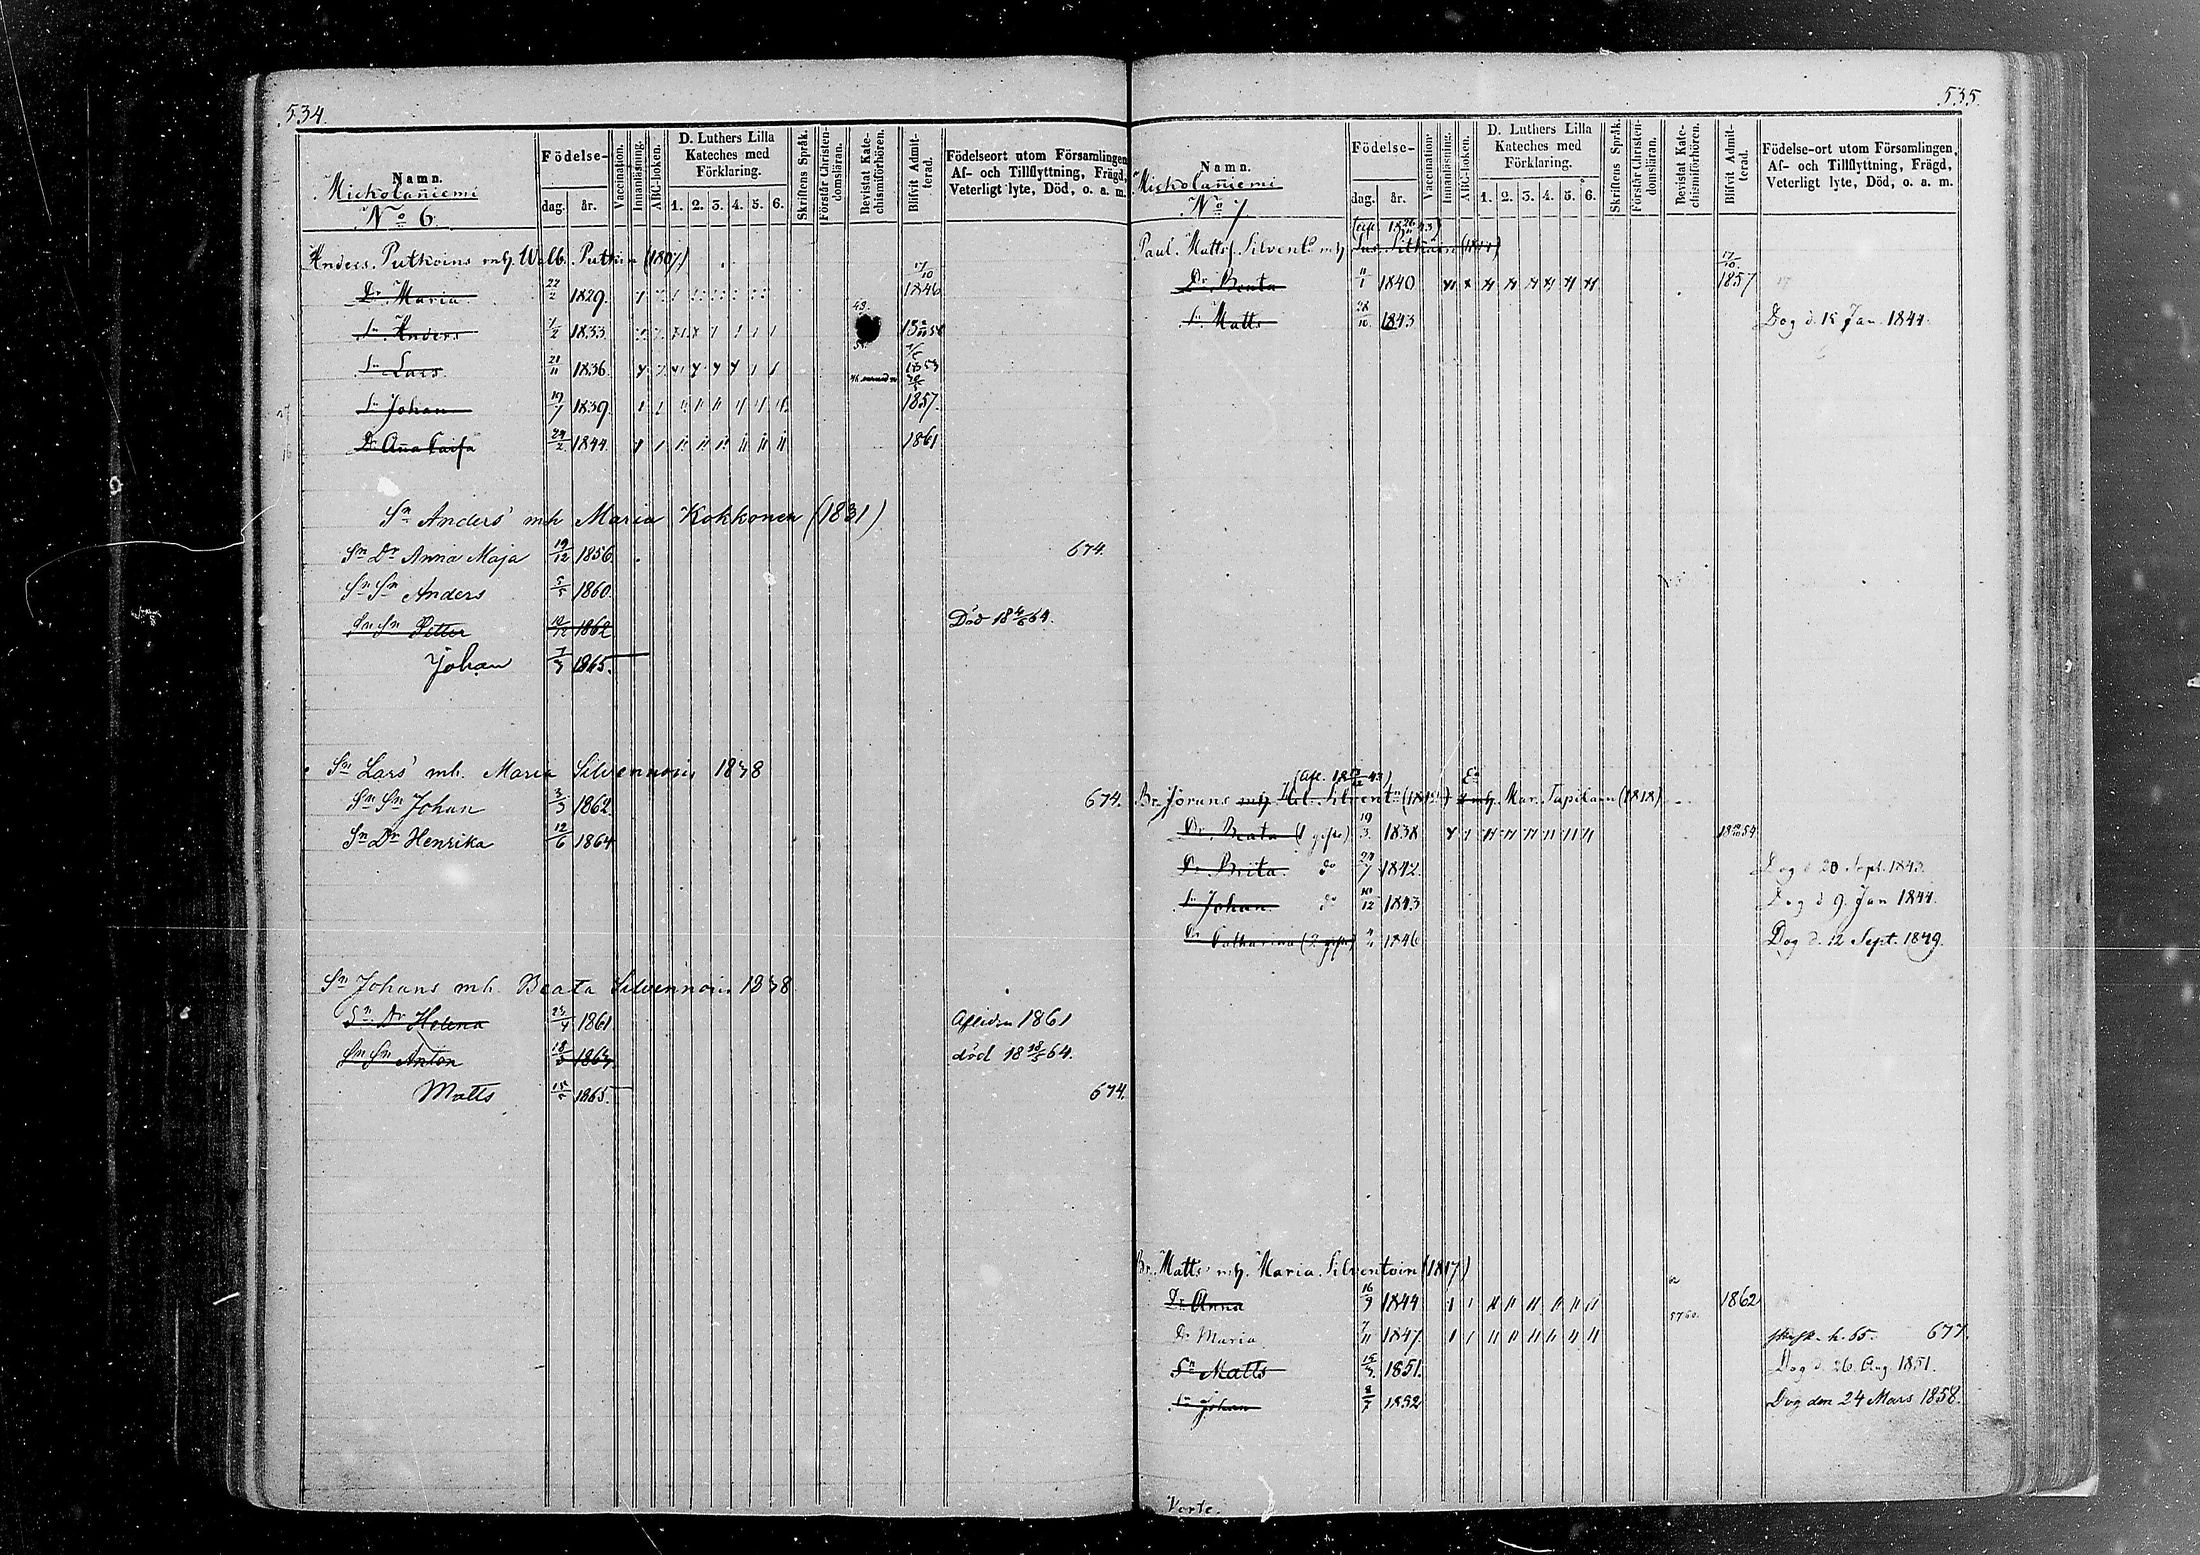 534.
Namn.
Födelse-
dag. år.
Vaccination.
Innanläsning.
ABC-boken.
D. Luthers Lilla
Kateches med
Förklaring.
1. 2. 3. 4. 5. 6.
Skriftens Språk.
Förstår Christen-
domsläran.
Bevistat Kate-
chismiförhören.
Blifvit Admit-
terad.
Födelseort utom Församlingen,
Af- och Tillflyttning, Frägd,
Veterligt lyte, Död, o. a. m.
Mickolaniemi
No 6.
Anders Putkoins mh. Walb. Putkin (1807)
Dr Maria 22/2 1829. 17/10 1846
Sn Anders 1/2 1833.
Sn Lars 21/11 1836. 1853
Sn Johan 19/7 1839 1857.
Dr Aña Caisa 24/2 1844. 1861
Sn Anders' mh Maria Kokkonen (1831)
Sn Dr Anna Maja 19/12 1856. 674.
Sn Sn Anders 5/5 1860.
Sn Sn Petter 1862 Död 18 64.
Johan 1865.
Sn Lars' mh. Maria Silvennoin 1838
Sn Sn Johan 3/3 1862. 674.
Sn Dr Henrika 12/6 1864
Sn Johans mh. Beata Silvennoin 1838
Sn Dr Helena 23/4 1861 Afliden 1861
Sn Sn Anton 1863. död 18 64.
Matts 1865. 674.
535.
Namn.
Födelse-
dag. år.
Vaccination.
Innanläsning.
ABC-boken.
D. Luthers Lilla
Kateches med
Förklaring.
1. 2. 3. 4. 5. 6.
Skriftens Språk.
Förstår Christen-
domsläran.
Bevistat Kate-
chismiförhören.
Blifvit Admit-
terad.
Födelse-ort utom Församlingen,
Af- och Tillflyttning, Frägd,
Veterligt lyte, Död, o. a. m.
Mickolaniemi
No 7
Paul Matts Silvent mh.
Dr Beata 11/1 1840 17/10 1857
Sn Matts 28/10 1843 Dog d. 15 Jan. 1844.
Br. Jörans mh. Hel. Silvent mh. Mar. Tapilain (1818)
Dr Beata (1 gifte) 19/3 1838
Dr Brita do 24/7 1842. Dog d 20 Sept. 1843.
Sn Johan do 10/12 1843 Dog d 9. Jan 1844.
Dr Catharina (2 gifte) 1846 Dog d. 12 Sept. 1849.
Br. Matts' mh. Maria Silventoin (1817)
Dr Anna 16/9 1844 1862
Dr Maria 7/11 1847. 5760. 677.
Sn Matts 1851. Dog d. 26 Aug. 1851.
Sn Johan 8/7 1852 Dog den 24 Mars 1858.
Verte.